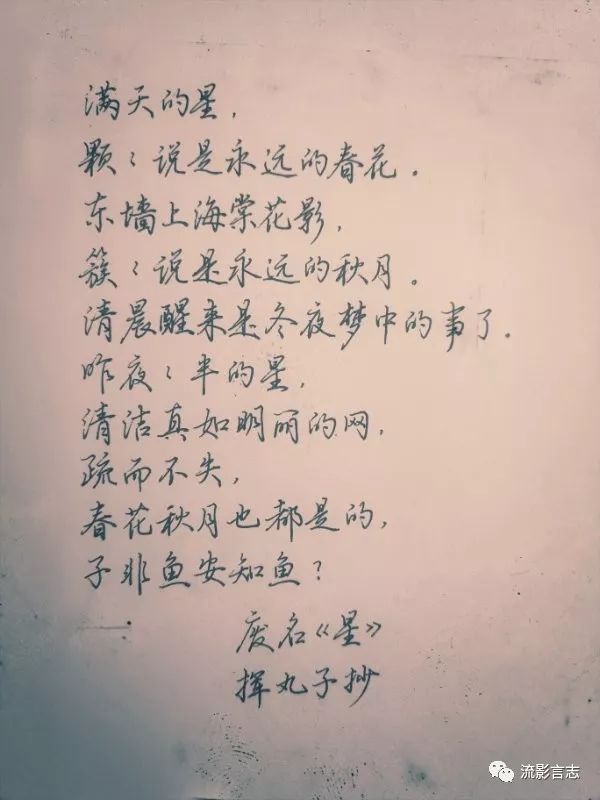 满天的星，
颗〻说是永远的春花。
东墙上海棠花影，
簇〻说是永远的秋月。
清晨醒来是冬夜梦中的事了。
昨夜〻半的星，
清洁真如明丽的网，
疏而不失，
春花秋月也都是的，
子非鱼安知鱼？
废名《星》
挥丸子抄
流影言志